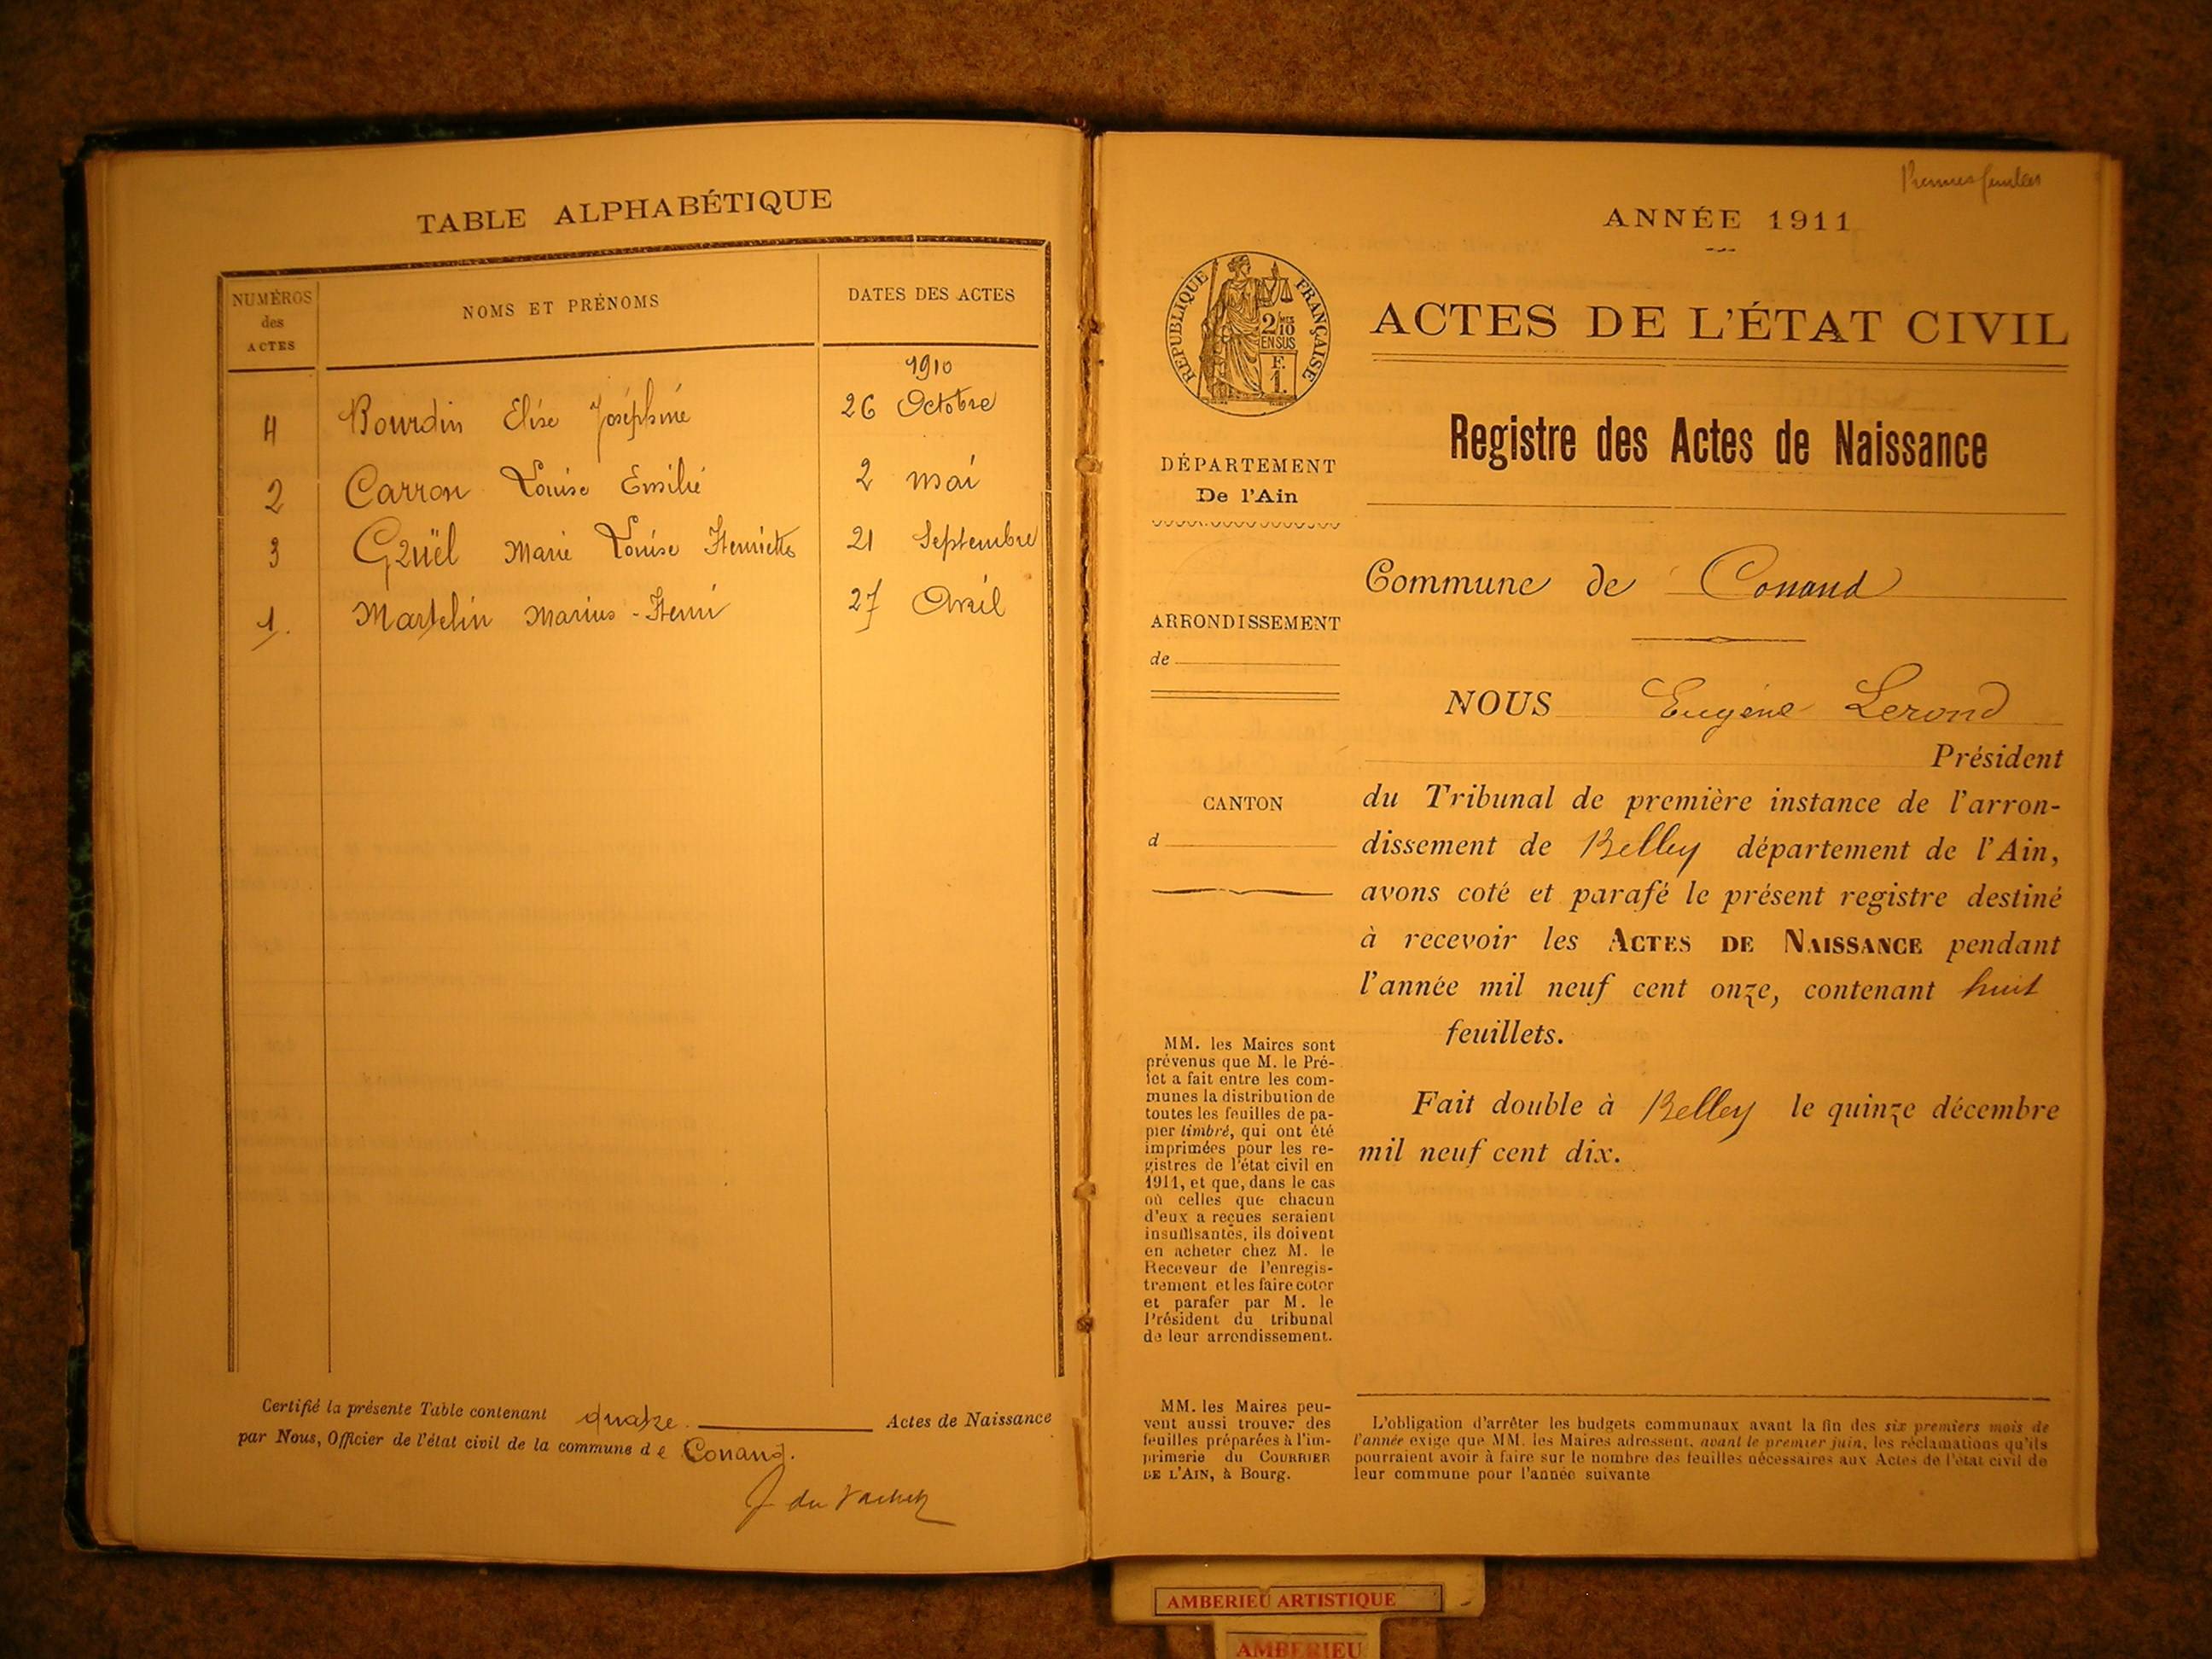 TABLE ALPHABÉTIQUE
NUMÉROS des ACTES
NOMS ET PRÉNOMS
DATES DES ACTES
1910
4 Bourdin Elise Joséphine 26 Octobre
2 Carron Louise Emilie 2 mai
3 Marie Louise Henriette 21 Septembre
1. Martelin Marius-Henri 27 Avril
Certifié la présente Table contenant quatre Actes de Naissance
par Nous, Officier de l'état civil de la commune de Conand.
ANNÉE 1911
RÉPUBLIQUE FRANÇAISE
2/10 MES
EN SUS
F.
1.
ACTES DE L'ÉTAT CIVIL
Registre des Actes de Naissance
DÉPARTEMENT
De l'Ain
Commune de Conand
ARRONDISSEMENT
de
NOUS Eugène Lerond
Président
CANTON
d
du Tribunal de première instance de l'arron-
dissement de Belley département de l'Ain,
avons coté et parafé le présent registre destiné
à recevoir les ACTES DE NAISSANCE pendant
l'année mil neuf cent onze, contenant huit
feuillets.
Fait double à Belley le quinze décembre
mil neuf cent dix.
MM. les Maires sont
prévenus que M. le Pré-
fet a fait entre les com-
munes la distribution de
toutes les feuilles de pa-
pier timbré, qui ont été
imprimées pour les re-
gistres de l'état civil en
1911, et que, dans le cas
où celles que chacun
d'eux a reçues seraient
insuffisantes, ils doivent
en acheter chez M. le
Receveur de l'enregis-
trement et les faire coter
et parafer par M. le
Président du tribunal
de leur arrondissement.
MM. les Maires peu-
vent aussi trouver des
feuilles préparées à l'im-
primerie du COURRIER
DE L'AIN, à Bourg.
L'obligation d'arrêter les budgets communaux avant la fin des six premiers mois de
l'année exige que MM. les Maires adressent, avant le premier juin, les réclamations qu'ils
pourraient avoir à faire sur le nombre des feuilles nécessaires aux Actes de l'état civil de
leur commune pour l'année suivante
AMBERIEU ARTISTIQUE
AMBERIEU